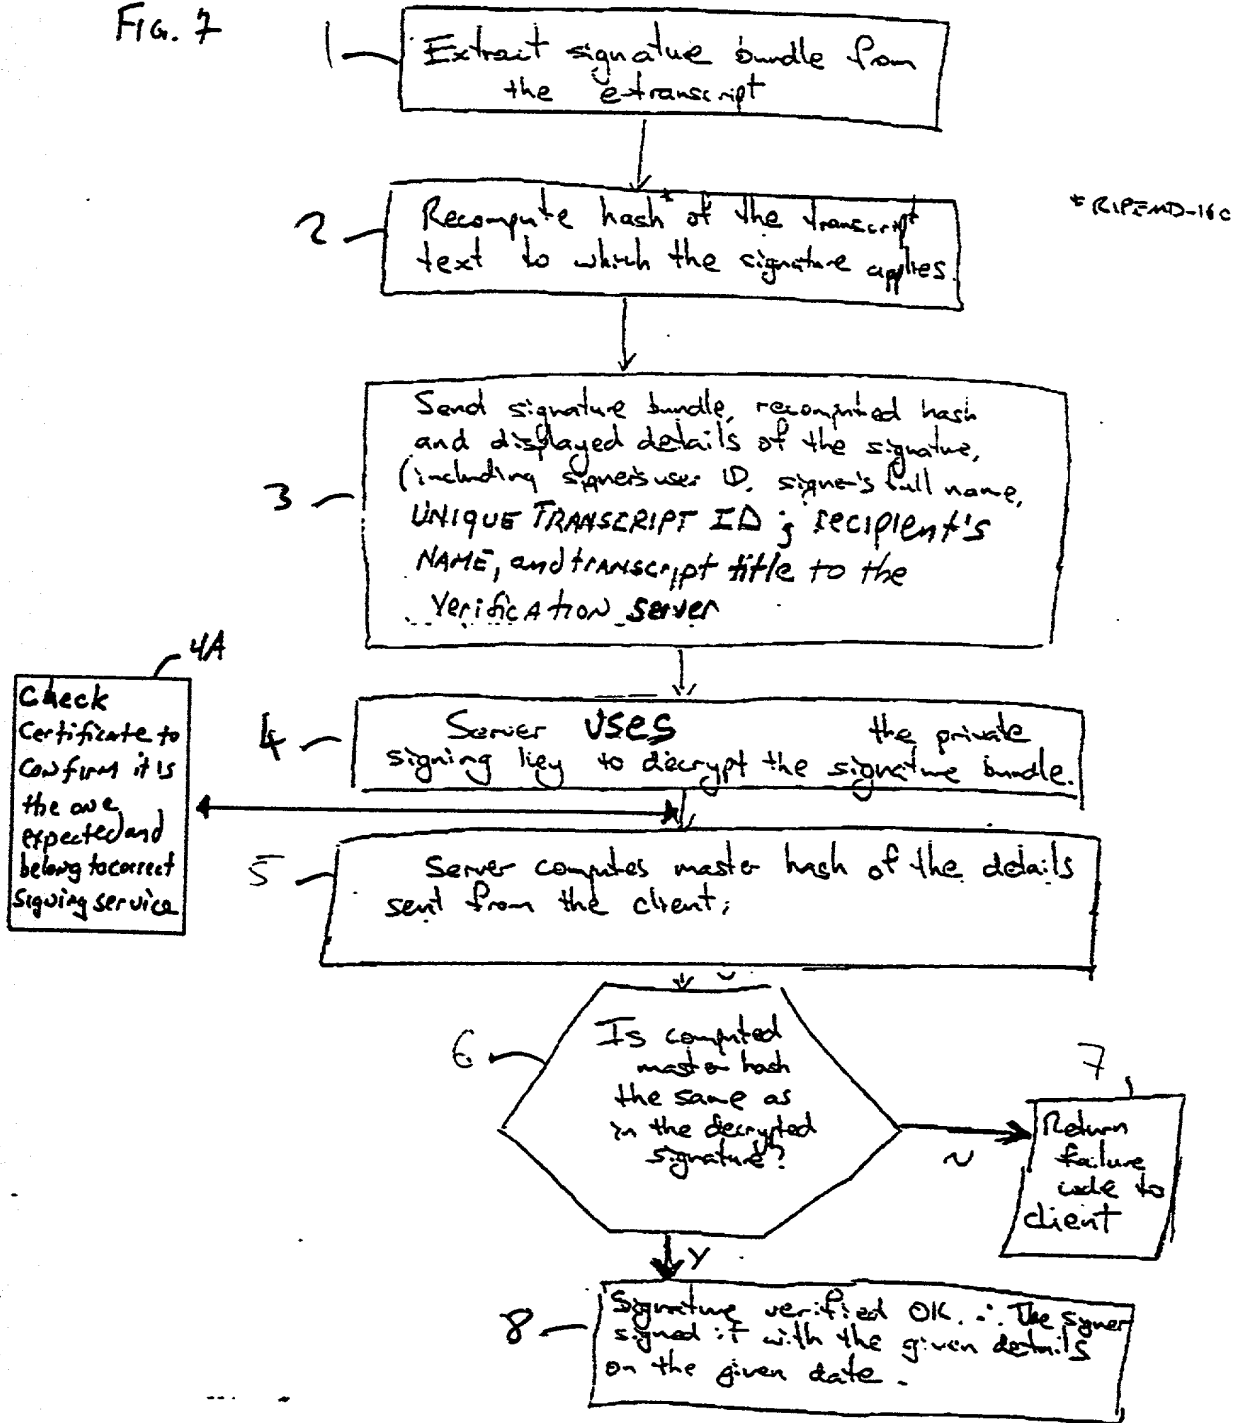 FIG. 7
1
Extrait signature bundle from
the e-transcript
2
Recompute hash* of the transcript
text to which the signature applies.
* RIPEMD-160
3
Send signature bundle, recomputed hash
and displayed details of the signature,
(including signer's user ID, signer's full name,
UNIQUE TRANSCRIPT ID ; recipient's
NAME, and transcript title to the
verification server
4A
Check
Certificate to
confirm it is
the one
expected and
belong to correct
signing service
4
Server uses the private
signing key to decrypt the signature bundle.
5
Server computes master hash of the details
sent from the client;
6
Is computed
master hash
the same as
in the decrypted
signature?
N
7
Return
failure
code to
client
Y
8
Signature verified OK. ∴ The signer
signed it with the given details
on the given date.